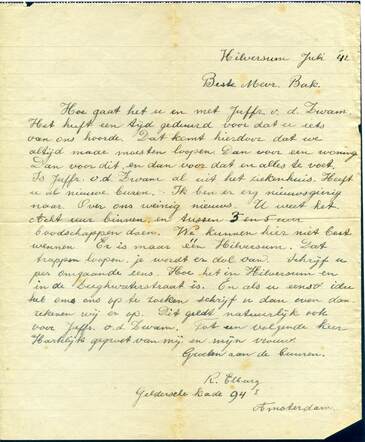 Hilversum Juli '42
Beste Mevr. Bak.
Hoe gaat het u en met Juffr. v. d. Zwam.
Het heeft een tijd geduurd voor dat u iets
van ons hoorde. Dat komt hierdoor dat we
altijd maar moesten loopen. Dan voor een woning
Dan voor dit en dan voor dat en alles te voet.
Is Juffr. v. d. Zwam al uit het ziekenhuis. Heeft
u al nieuwe buren. Ik ben er erg nieuwsgierig
naar. Over ons weinig nieuws. U weet het
Acht uur binnen, en tussen 3 en 5 uur
boodschappen doen. We kunnen hier niet
wennen Er is maar één Hilversum. Dat
trappen loopen, je wordt er dol van. Schrijf u
per omgaande eens. Hoe het in Hilversum en
in de is. En als u eens 't idee
hebt om ons op te zoeken schrijf u dan even dan
rekenen wij er op. Dit geldt natuurlijk ook
voor Juffr. v. d. Zwam. Tot een volgende keer
Hartelijk gegroet van mij en mijn vrouw.
Groeten aan de Buuren.
R. Elburg
Geldersche kade 94
Amsterdam.